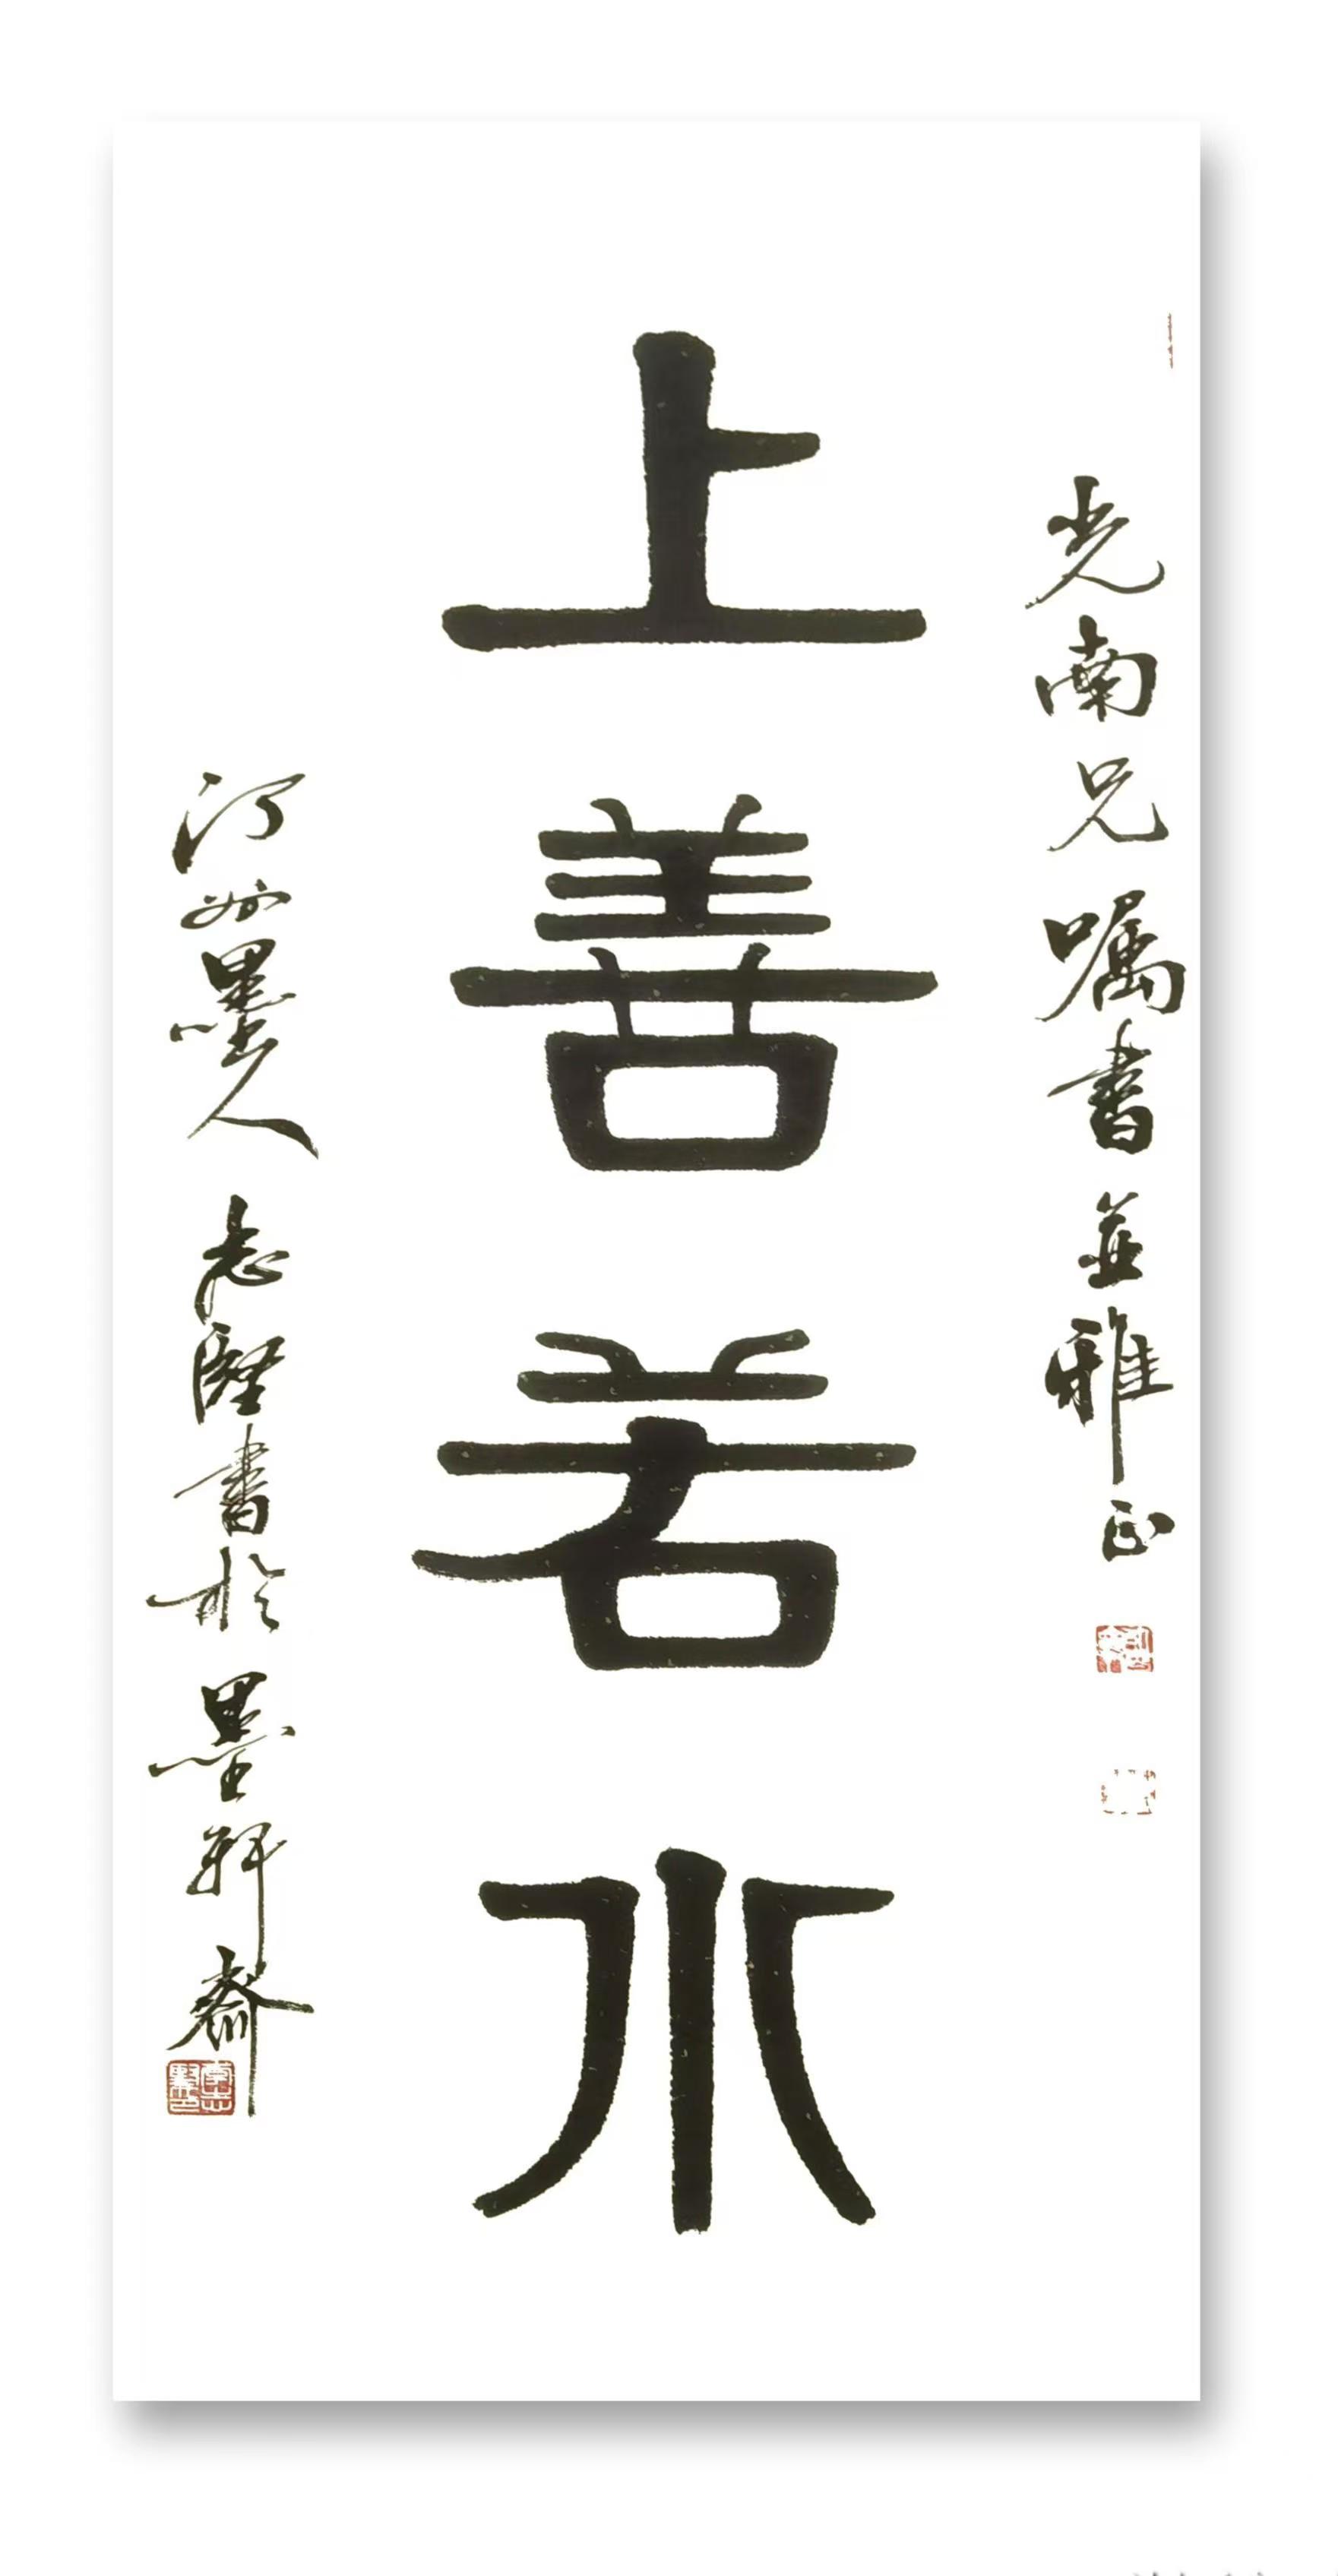 光南兄嘱书並雅正
上善若水
河州墨人志坚书於墨轩斋